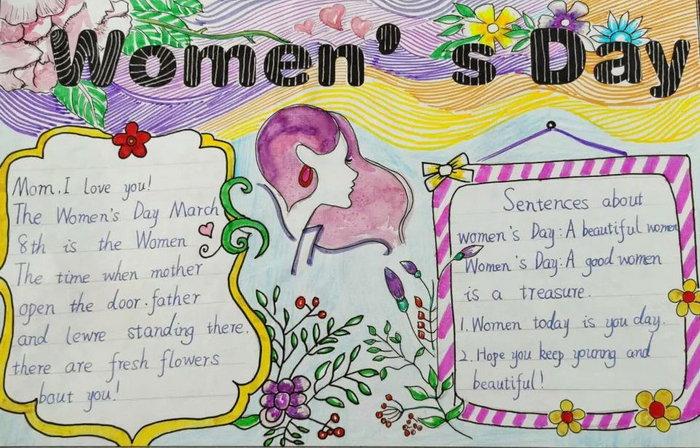 Women's Day
Mom. I love you!
The Women's Day March
8th is the Women
The time when mother
open the door. father
and lewre standing there.
there are fresh flowers
bout you!
Sentences about
women's Day: A beautiful women
Women's Day: A good women
is a treasure.
1. Women today is you day.
2. Hope you keep young and
beautiful!